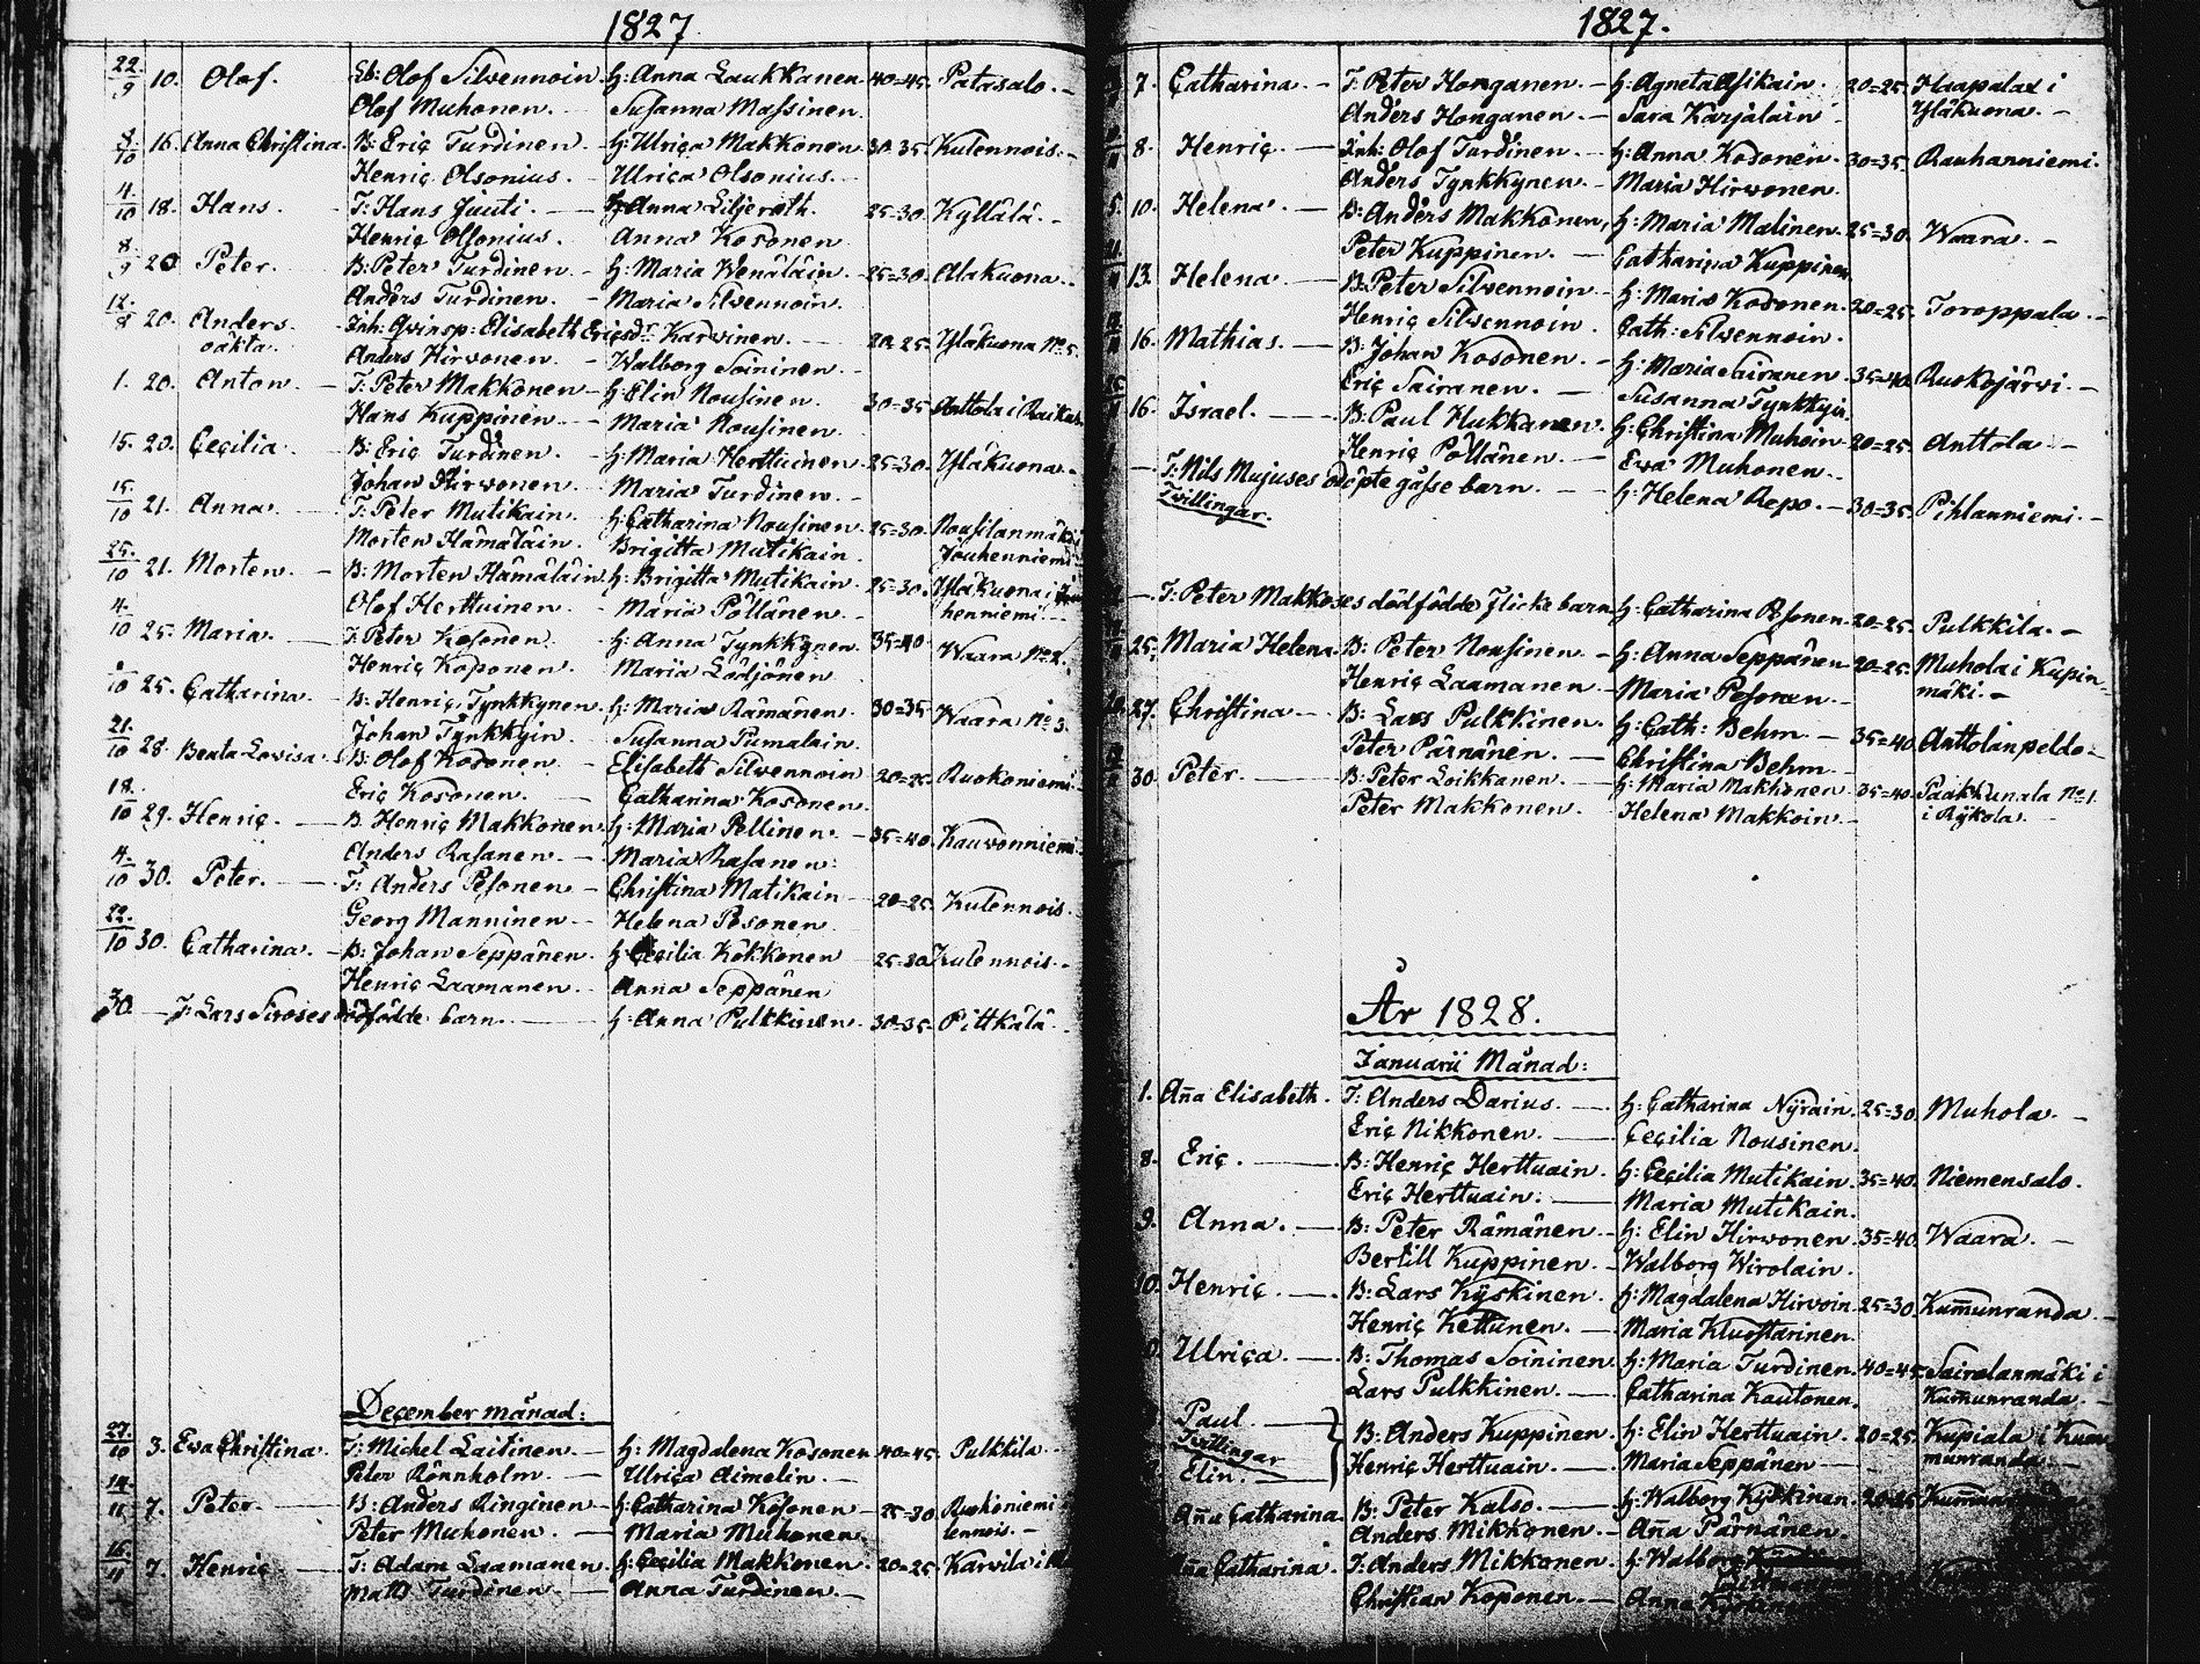 1827
22/9 10. Olof. Eb: Olof Silvennoin. h: Anna Laukkanen. 40=45. Patasalo.
Olof Muhonen. Susanna Massinen.
8/10 16. Anna Christina. B: Eric Turdinen. h: Ulrica Makkonen. 30=35. Kutennois.
Henric Olsonius. Ulrica Olsonius.
4/10 18. Hans. T: Hans Juuti. h: Anna Liljeroth. 25=30. Kyllälä.
Henric Olsonius. Anna Kosonen
8/9 20 Peter. B: Peter Turdinen. h: Maria Wenäläin. 25=30. Alakuona.
Anders Turdinen. Maria Silvennoin.
12/8 20. Anders Inh: Qvinsp: Elisabeth Ericsdr Karvinen. 20=25. Yläkuona No 5.
oäkta. Anders Hirvonen. Walborg Soininen.
1. 20. Anton. T: Peter Makkonen h: Elin Nousinen. 30=35 Anttola i
Hans Kuppinen Maria Nousinen
15. 20. Cecilia. B: Eric Turdinen. h: Maria Herttuinen. 25=30. Yläkuona.
Johan Hirvonen Maria Turdinen.
15/10 21. Anna. T: Peter Mutikain. h: Catharina Nousinen. 25=30. Nousilanmäki
Morten Hämäläin. Brigitta Mutikain. Jouhenniemi
25/10 21. Morten. B: Morten Hämäläin. h: Brigitta Mutikain. 25=30. Yläkuona i
Olof Herttuinen. Maria Pöllänen. henniemi.
4/10 25. Maria. T: Peter Kosonen. h: Anna Tynkkynen. 35=40. Waara No 2.
Henric Koponen. Maria Lödjönen
/10 25. Catharina. B: Henric Tynkkynen. h: Maria Rämänen. 30=35 Waara No 3.
Johan Tynkkyin. Susanna Pumalain.
21/10 28. Beata Lovisa. B: Olof Kosonen Elisabeth Silvennoin 20=25. Ruokoniemi.
Eric Kosonen. Catharina Kosonen.
18/10 29. Henric. B. Henric Makkonen. h: Maria Pellinen. 35=40. Kauvonniemi.
Anders Rasanen. Maria Rasanen.
4/10 30. Peter. T: Anders Pesonen Christina Matikain 20=25. Kutennois.
Georg Manninen Helena Pesonen
22/10 30. Catharina. B: Johan Seppänen. h: Cecilia Kokkonen 25=30. Kutennois.
Henric Laamanen. Anna Seppänen
30. T: Lars Siroses dödfödde barn. h: Anna Pulkkinen. 30=35. Pittkälä.
December månad:
27/10 3. Ewa Christina. T: Michel Laitinen. h: Magdalena Kosonen 40=45. Pulkkila
Peter Rönnholm. Ulrica Aimelin.
14/11 7. Peter. B: Anders Ringinen h: Catharina Kosonen 25=30 Ruokoniemi
Peter Muhonen. Maria Muhonen. tennois.
16/11 7. Henric T: Adam Laamanen. h: Cecilia Makkonen. 20=25 Karvila i
Matts Turdinen Anna Turdinen.
1827.
7. Catharina. T: Peter Honganen. h: Agneta Asikain. 20=25. Haapalax i
Anders Honganen. Sara Karjalain Yläkuona.
8. Henric. Inh: Olof Turdinen. h: Anna Kosonen. 30=35. Rauhanniemi.
Anders Tynkkynen. Maria Hirvonen.
10. Helena. B: Anders Makkonen, h: Maria Malinen. 25=30. Waara.
Peter Kuppinen. Catharina Kuppinen.
13. Helena. B: Peter Silvennoin h: Maria Kosonen. 20=25. Toroppala.
Henric Silvennoin. Cath: Silvennoin.
16. Mathias. B: Johan Kosonen. h: Maria Sairanen. 35=40. Ruokojärvi.
Eric Sairanen. Susanna Tynkkyin.
16. Israel. B: Paul Hukkanen. h: Christina Muhoin 20=25. Anttola.
Henric Pöllänen. Ewa Muhonen.
T: Nils Mujuses odöpte gosse barn. h: Helena Repo. 30=35. Pihlanniemi.
Tvillingar.
T: Peter Makkoses dödfödde flicke barn. h: Catharina Pesonen. 20=25. Pulkkila.
25. Maria Helena. B: Peter Nousinen. h: Anna Seppänen 20=25. Muhola i Kupin-
Henric Laamanen. Maria Pesonen. mäki.
27. Christina B: Lars Pulkkinen. h: Cath: Behm. 35=40. Anttolanpeldo.
Peter Pärnänen. Christina Behm
30. Peter. B: Peter Loikkanen. h: Maria Makkonen 35=40. Paakkunala No 1.
Peter Makkonen. Helena Makkoin. i Rÿkola.
År 1828.
Januarii Månad:
1. Aña Elisabeth. T: Anders Darius. h: Catharina Nÿrain. 25=30 Muhola.
Eric Nikkonen. Cecilia Nousinen.
8. Eric. B: Henric Herttuain. h: Cecilia Mutikain. 35=40. Niemensalo.
Eric Herttuain. Maria Mutikain.
9. Anna. B: Peter Rämänen h: Elin Hirvonen. 35=40. Waara.
Bertill Kuppinen. Walborg Wirolain.
10. Henric. B: Lars Kÿskinen. h: Magdalena Hirvoin. 25=30 Kum̄unranda.
Henric Kettunen. Maria Kluostarinen.
Ulrica. B: Thomas Soininen. h: Maria Turdinen. 40=45. Sairalanmäki i
Lars Pulkkinen. Catharina Kautonen. Kum̄unranda.
Paul. B: Anders Kuppinen. h: Elin Herttuain. 20=25. Kupiala i Kum-
Tvillingar
Elin. Henric Herttuain. Maria Seppänen munranda.
Aña Catharina. B: Peter Kalso. h: Walborg Kÿskinen. 20=25
Anders Mikkonen. Aña Pärnänen.
Aña Catharina. T: Anders Mikkonen. h: Walborg
Christian Koponen. Anna